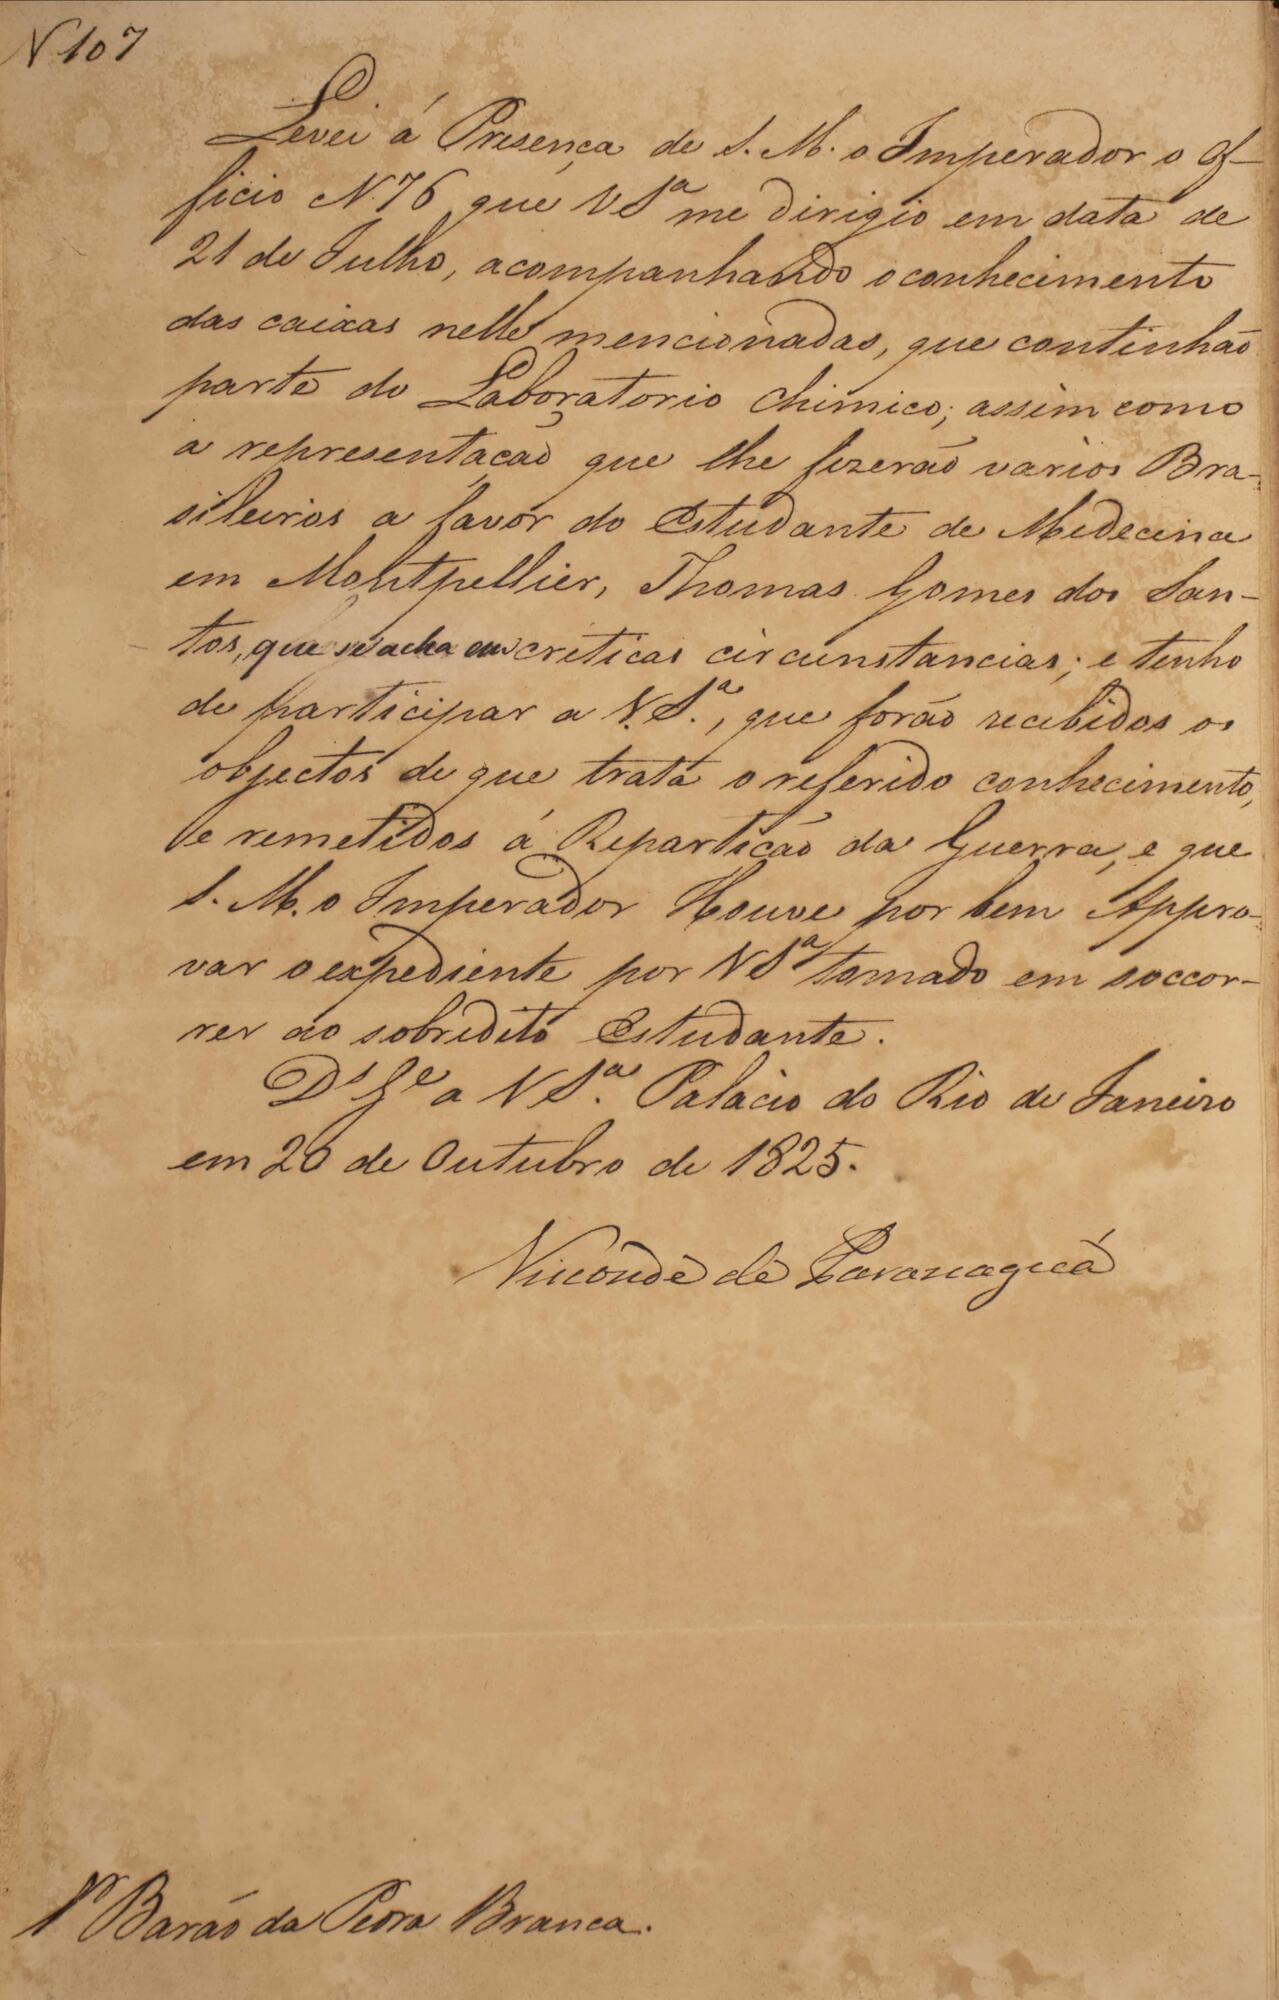 N 107
Levei á Presença de S. M. o Imperador o Of-
ficio N. 76 que V Sª me dirigio em data de
21 de Julho, acompanhando o conhecimento
das caixas nelle mencionadas, que continhão
parte do Laboratorio Chimico; assim como
a representação que lhe fizerão varios Bra-
sileiros a favor do Estudante de Medecina
em Montpellier, Thomas Gomes dos San-
tos, que se acha em criticas circunstancias; e tenho
de participar a V. Sª., que forão recebidos os
objectos de que trata o referido conhecimento,
e remetidos á Repartição da Guerra, e que
S. M. o Imperador Houve por bem Appro-
var o expediente por V Sª tomado em soccor-
rer ao sobredito Estudante.
Dˢ Gᵉ a V Sª. Palacio do Rio de Janeiro
em 20 de Outubro de 1825.
Visconde de Paranaguá
Sʳ Barão da Pedra Branca.